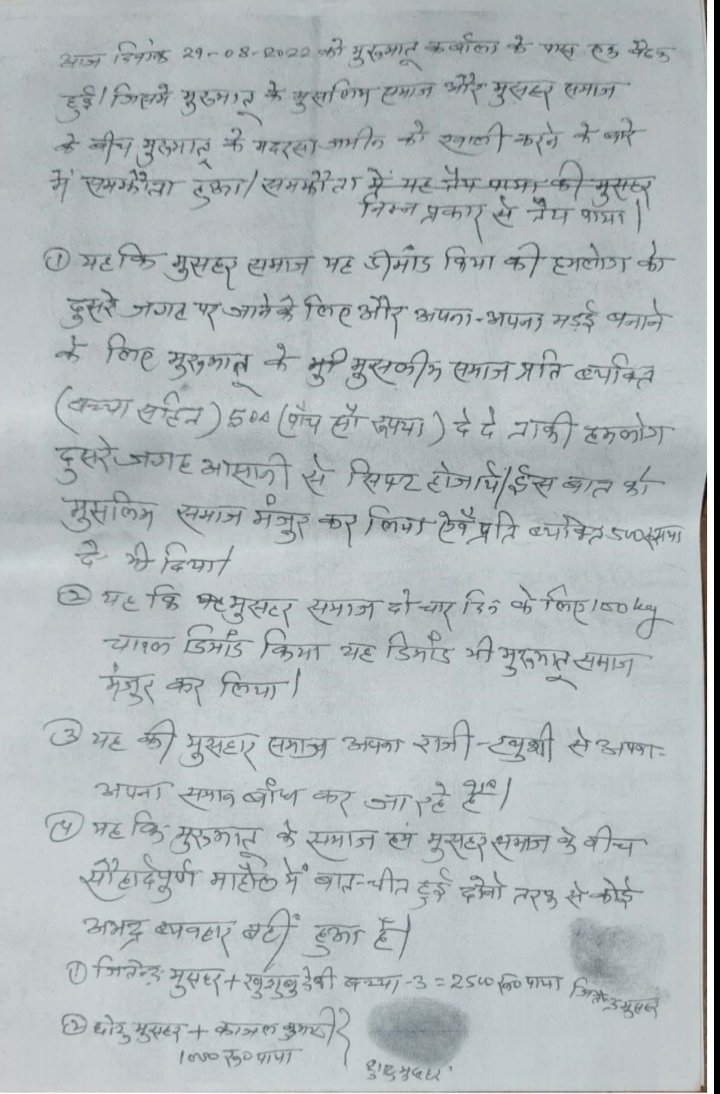 आज दिनांक 29-08-2022 को मुरुमातू कर्बला के पास एक बैठक
हुई। जिसमें मुरुमातू के मुसलिम समाज और मुसहर समाज
के बीच मुरुमातू के मदरसा जमीन को खाली करने के बारे
में समझौता हुआ। समझौता में यह तैय पाया की मुसहर
निम्न प्रकार से तैय पाया।
① यह कि मुसहर समाज यह डीमांड किया की हमलोग को
दुसरे जगह पर जाने के लिए और अपना-अपना मड़ई बनाने
के लिए मुरुमातू के मुसलीम समाज प्रति ब्यक्ति
(बच्चा सहित) 500 (पाँच सौ रूपया) दे दे ताकी हमलोग
दुसरे जगह आसानी से सिफ्ट होजायें। ईस बात को
मुसलिम समाज मंजुर कर लिया एवं प्रति ब्यक्ति 500 रूपया
दे भी दिया।
② यह कि मुसहर समाज दो चार दिन के लिए 150 kg
चावल डिमांड किया यह डिमांड भी मुरुमातू समाज
मंजुर कर लिया।
③ यह की मुसहार समाज अपना राजी-खुशी से अपना-
अपना समान बाँध कर जा रहे हैं।
④ यह कि मुरुमातू के समाज एवं मुसहर समाज के बीच
सौहार्दपुर्ण माहौल में बात-चीत हुई दोनो तरफ से कोई
अभद्र ब्यवहार नहीं हुआ है।
① जितेन्द्र मुसहर + खुशबु देवी बच्चा-3 = 2500 रू0 पाया
जितेन्द्र मुसहर
② छोटु मुसहर + काजल कुमारी
1000 रू0 पाया
छोटु मुसहर